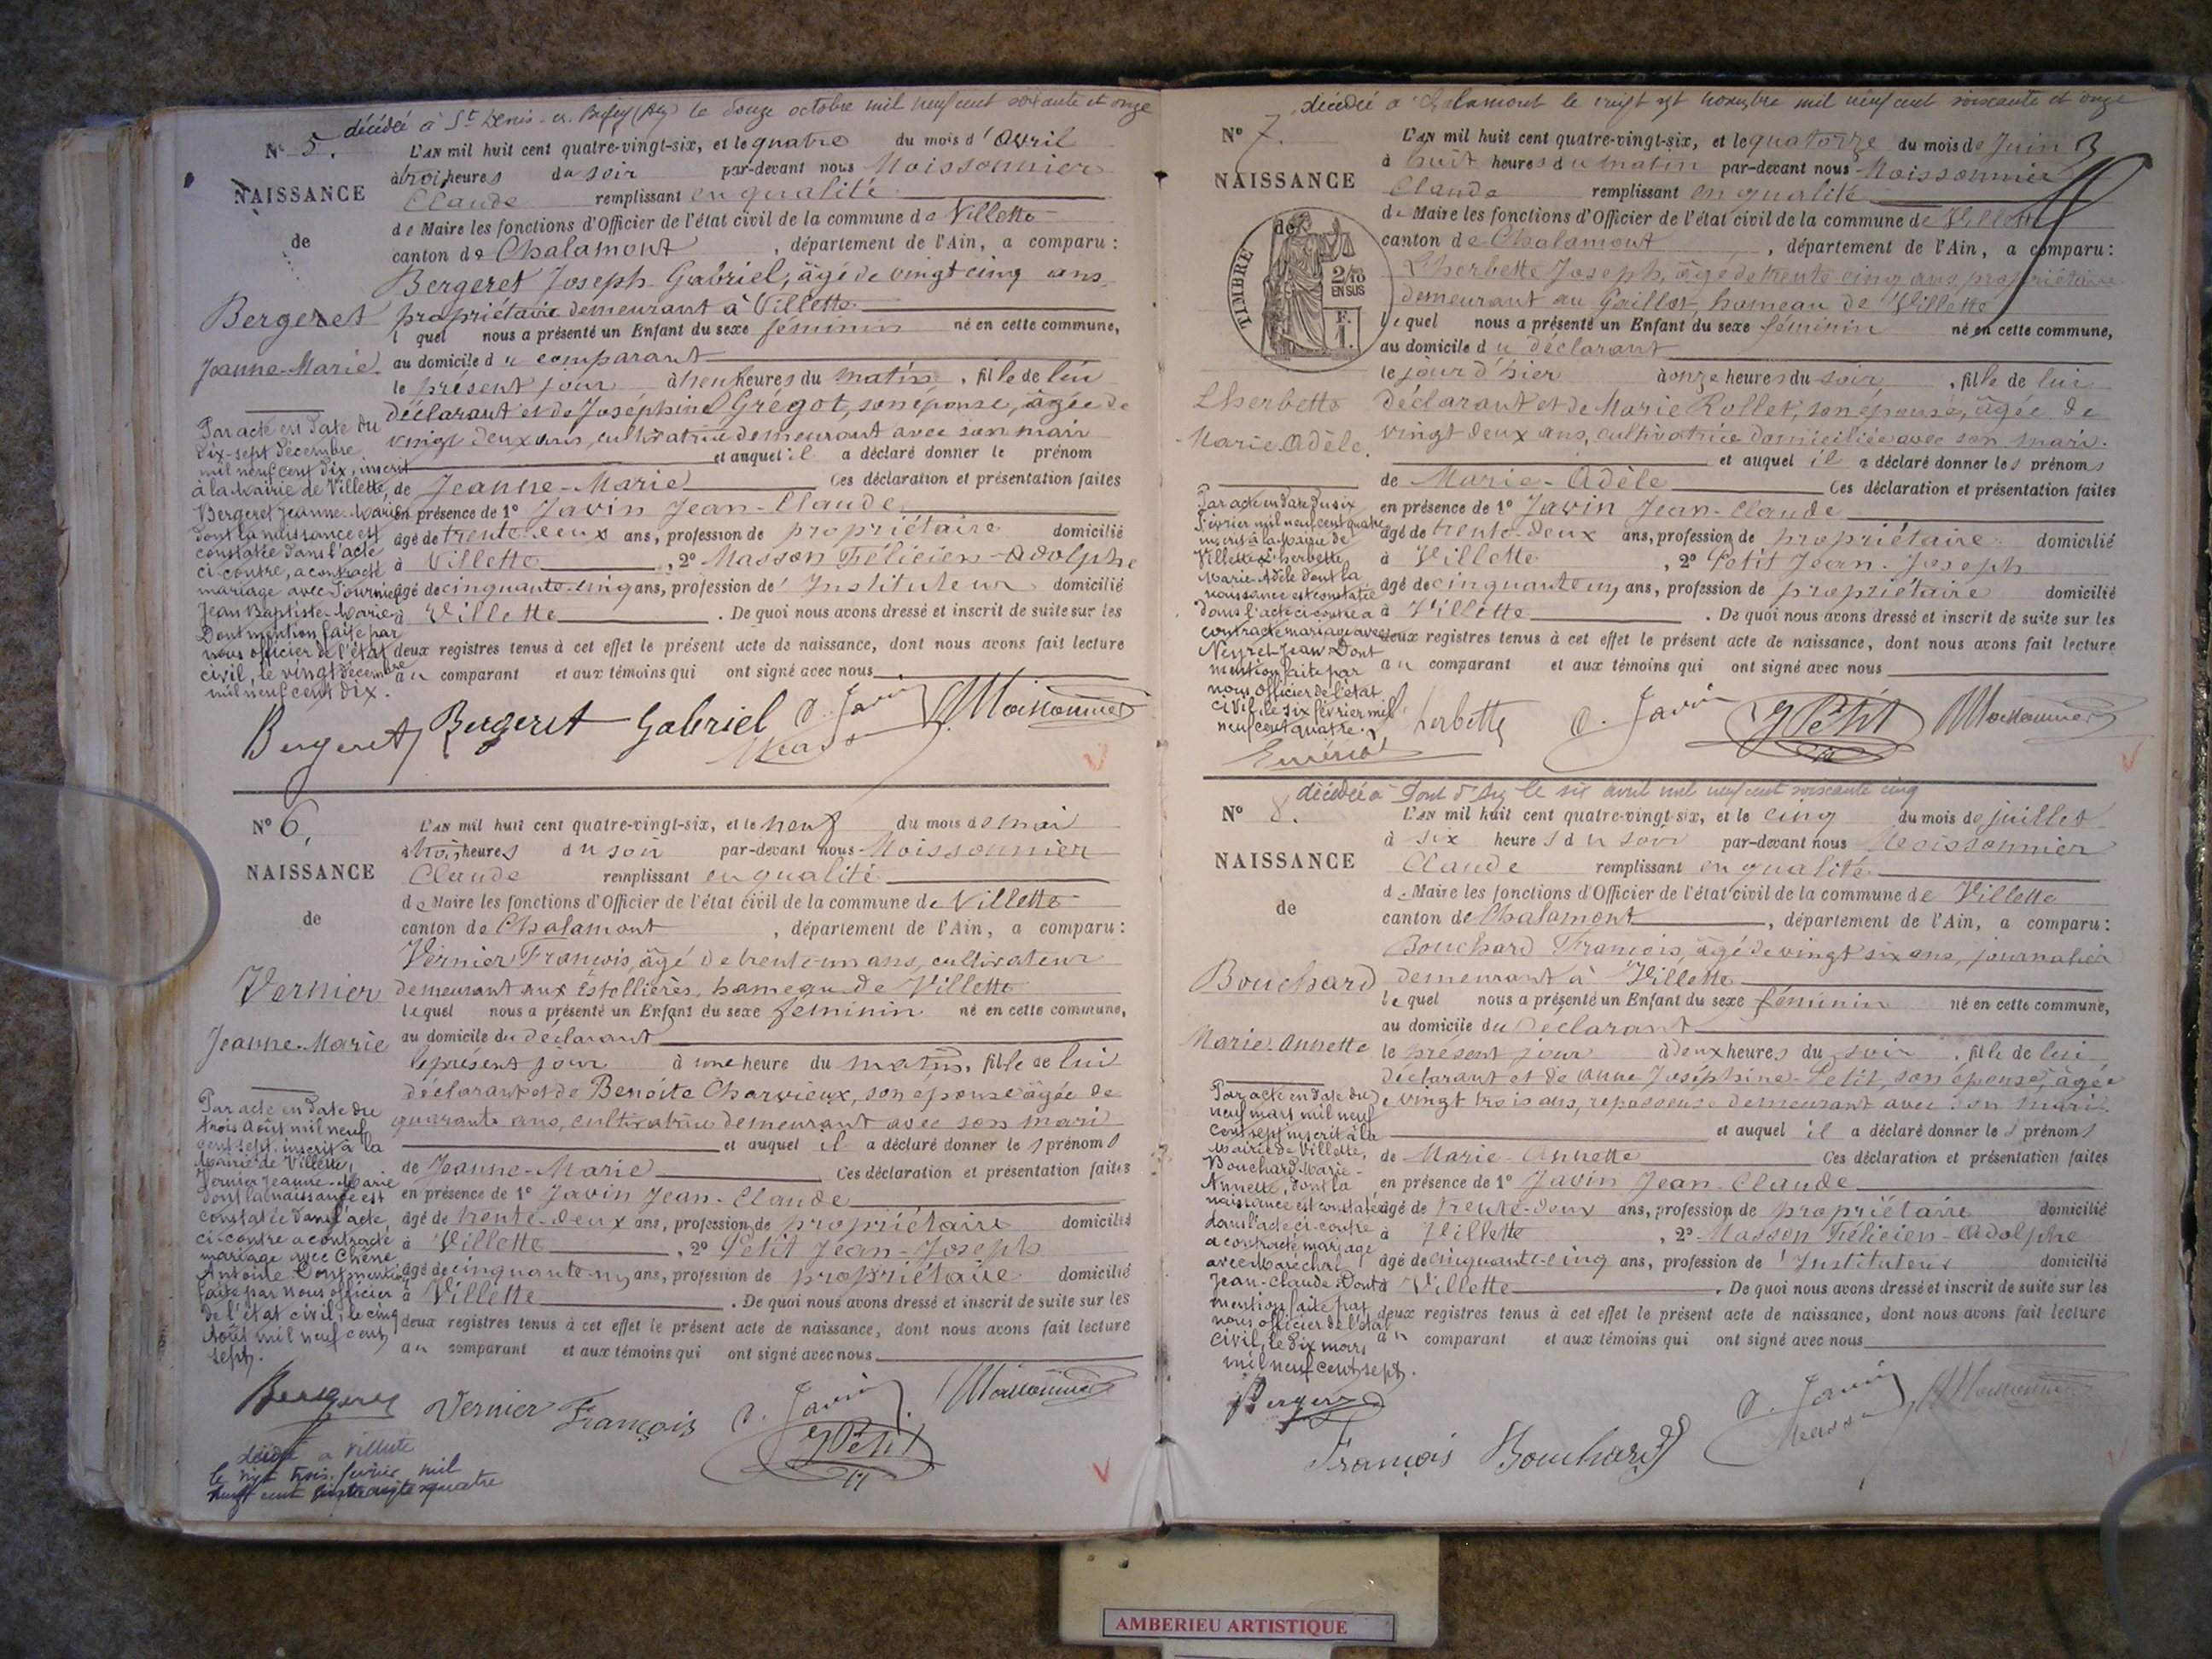 décédée à St Denis en Bugey (Ain) le douze octobre mil neuf cent soixante et onze
No 5.
NAISSANCE
de
Bergeret
Jeanne-Marie
L'AN mil huit cent quatre-vingt-six, et le quatre du mois d'Avril
à trois heures du soir par-devant nous Moissonnier
Claude remplissant en qualité
de Maire les fonctions d'Officier de l'état civil de la commune de Villette
canton de Chalamont, département de l'Ain, a comparu :
Bergeret Joseph Gabriel, âgé de vingt cinq ans
propriétaire demeurant à Villette
lequel nous a présenté un Enfant du sexe féminin né en cette commune,
au domicile du comparant
le présent jour à heures du matin, fille de lui
déclarant et de Joséphine Grégot, son épouse, âgée de
vingt deux ans, cultivatrice demeurant avec son mari
et auquel il a déclaré donner le prénom
de Jeanne-Marie Ces déclaration et présentation faites
en présence de 1° Javin Jean-Claude
âgé de trente-deux ans, profession de propriétaire domicilié
à Villette, 2° Masson Félicien-Adolphe
âgé de cinquante-cinq ans, profession de Instituteur domicilié
à Villette. De quoi nous avons dressé et inscrit de suite sur les
deux registres tenus à cet effet le présent acte de naissance, dont nous avons fait lecture
au comparant et aux témoins qui ont signé avec nous
Par acte en date du
dix-sept décembre
mil neuf cent dix, inscrit
à la Mairie de Villette,
Bergeret Jeanne-Marie
dont la naissance est
constatée dans l'acte
ci-contre, a contracté
mariage avec Fournier
Jean Baptiste-Marie
Dont mention faite par
nous officier de l'état
civil, le vingt décembre
mil neuf cent dix.
Bergeret Bergeret Gabriel C. Javin Masson Moissonnier
No 6.
NAISSANCE
de
Vernier
Jeanne-Marie
L'AN mil huit cent quatre-vingt-six, et le neuf du mois de mai
à trois heures du soir par-devant nous Moissonnier
Claude remplissant en qualité
de Maire les fonctions d'Officier de l'état civil de la commune de Villette
canton de Chalamont, département de l'Ain, a comparu :
Vernier François, âgé de trente-un ans, cultivateur
demeurant aux Estollières, hameau de Villette
lequel nous a présenté un Enfant du sexe féminin né en cette commune,
au domicile du déclarant
le présent jour à une heure du matin, fille de lui
déclarant et de Benoite Charvieux, son épouse âgée de
quarante ans, cultivatrice demeurant avec son mari
et auquel il a déclaré donner les prénoms
de Jeanne-Marie Ces déclaration et présentation faites
en présence de 1° Javin Jean-Claude
âgé de trente-deux ans, profession de propriétaire domicilié
à Villette, 2° Petit Jean-Joseph
âgé de cinquante-un ans, profession de propriétaire domicilié
à Villette. De quoi nous avons dressé et inscrit de suite sur les
deux registres tenus à cet effet le présent acte de naissance, dont nous avons fait lecture
au comparant et aux témoins qui ont signé avec nous
Par acte en date du
trois Août mil neuf
cent sept, inscrit à la
Mairie de Villette,
Vernier Jeanne-Marie
dont la naissance est
constatée dans l'acte
ci-contre a contracté
mariage avec Chêne
Antoine Dont mention
faite par nous officier
de l'état civil, le cinq
Août mil neuf cent
sept.
Bergeret Vernier François C. Javin J Petit Moissonnier
décédée à Villette
le vingt trois février mil
neuf cent quatre
décédée à Chalamont le vingt sept novembre mil neuf cent soixante et onze
No 7.
NAISSANCE
de
TIMBRE
2/10
EN SUS
F.
1.
Lherbette
Marie-Adèle.
L'AN mil huit cent quatre-vingt-six, et le quatorze du mois de Juin
à huit heures du matin par-devant nous Moissonnier
Claude remplissant en qualité
de Maire les fonctions d'Officier de l'état civil de la commune de Villette
canton de Chalamont, département de l'Ain, a comparu :
Lherbette Joseph, âgé de trente cinq ans, propriétaire
demeurant au Gaillot, hameau de Villette
lequel nous a présenté un Enfant du sexe féminin né en cette commune,
au domicile du déclarant
le jour d'hier à onze heures du soir, fille de lui
déclarant et de Marie Rollet, son épouse, âgée de
vingt deux ans, cultivatrice domiciliée avec son mari.
et auquel il a déclaré donner les prénoms
de Marie-Adèle Ces déclaration et présentation faites
en présence de 1° Javin Jean-Claude
âgé de trente-deux ans, profession de propriétaire domicilié
à Villette, 2° Petit Jean-Joseph
âgé de cinquante un ans, profession de propriétaire domicilié
à Villette. De quoi nous avons dressé et inscrit de suite sur les
deux registres tenus à cet effet le présent acte de naissance, dont nous avons fait lecture
au comparant et aux témoins qui ont signé avec nous
Par acte en date du six
février mil neuf cent quatre
inscrit à la mairie de
Villette, Lherbette
Marie-Adèle dont la
naissance est constatée
dans l'acte ci-contre a
contracté mariage avec
Neyret Jean Dont
mention faite par
nous officier de l'état
civil, le six février mil
neuf cent quatre.
Lherbette C. Javin J Petit Moissonnier
décédée à Pont d'Ain le six avril mil neuf cent soixante cinq
No 8.
NAISSANCE
de
Bouchard
Marie-Annette
L'AN mil huit cent quatre-vingt-six, et le cinq du mois de juillet
à six heures du soir par-devant nous Moissonnier
Claude remplissant en qualité
de Maire les fonctions d'Officier de l'état civil de la commune de Villette
canton de Chalamont, département de l'Ain, a comparu :
Bouchard François, âgé de vingt six ans, journalier
demeurant à Villette
lequel nous a présenté un Enfant du sexe féminin né en cette commune,
au domicile du Déclarant
le présent jour à deux heures du soir, fille de lui
déclarant et de Anne Joséphine Petit, son épouse, âgée
de vingt trois ans, repasseuse demeurant avec son mari.
et auquel il a déclaré donner les prénoms
de Marie-Annette Ces déclaration et présentation faites
en présence de 1° Javin Jean-Claude
âgé de trente-deux ans, profession de propriétaire domicilié
à Villette, 2° Masson Félicien-Adolphe
âgé de cinquante-cinq ans, profession de Instituteur domicilié
à Villette. De quoi nous avons dressé et inscrit de suite sur les
deux registres tenus à cet effet le présent acte de naissance, dont nous avons fait lecture
au comparant et aux témoins qui ont signé avec nous
Par acte en date du
neuf mars mil neuf
cent sept inscrit à la
Mairie de Villette,
Bouchard Marie-
Annette, dont la
naissance est constatée
dans l'acte ci-contre
a contracté mariage
avec Maréchal
Jean-Claude. Dont
mention faite par
nous officier de l'état
civil, le dix mars
mil neuf cent sept.
Bergeret
François Bouchard C. Javin Masson Moissonnier
AMBERIEU ARTISTIQUE